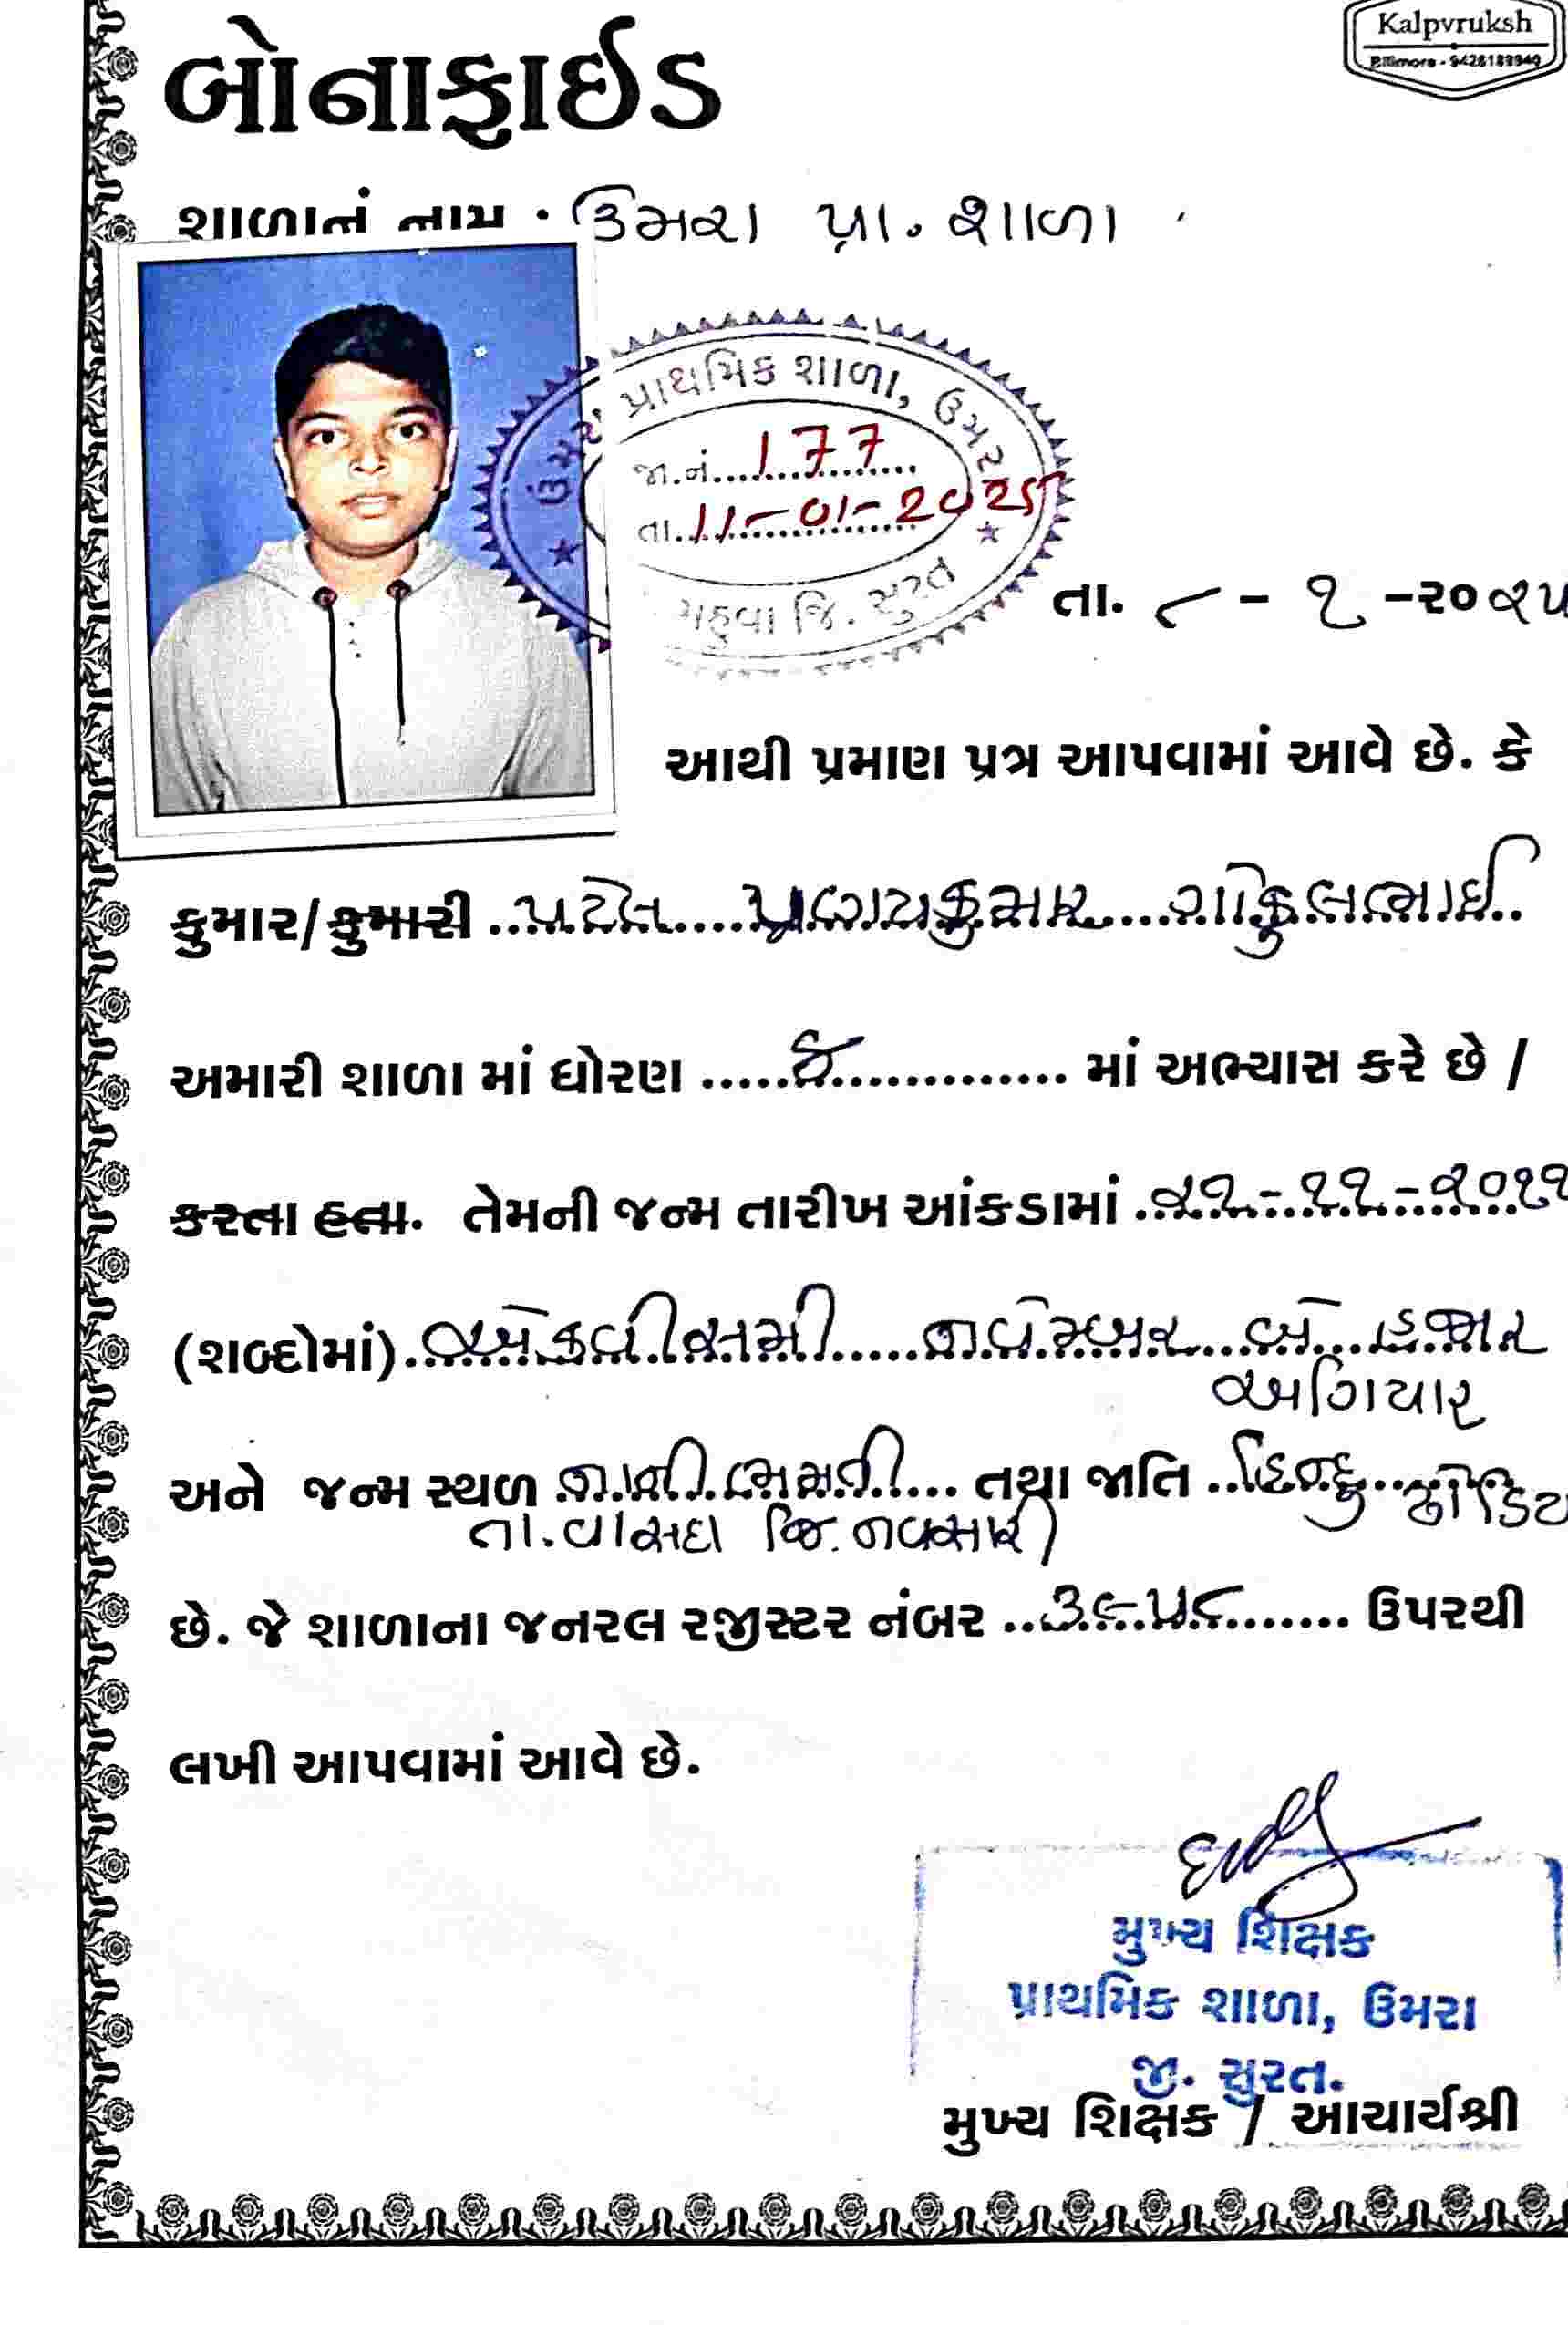 Kalpvruksh
Billimora - 9426189940
બોનાફાઈડ
શાળાનું નામ : ઉમરા પ્રા. શાળા
ઉમરા પ્રાથમિક શાળા, ઉમરા
જા.નં. 177
તા. 11-01-2025
મહુવા જિ. સુરત
તા. ૮ - ૧ -૨૦૨૫
આથી પ્રમાણ પત્ર આપવામાં આવે છે. કે
કુમાર/કુમારી પટેલ પ્રણયકુમાર ગોકુલભાઈ
અમારી શાળા માં ધોરણ માં અભ્યાસ કરે છે /
કરતા હતા. તેમની જન્મ તારીખ આંકડામાં ૨૧-૧૧-૨૦૧૧
(શબ્દોમાં) એકવીસમી નવેમ્બર બે હજાર
અગિયાર
અને જન્મ સ્થળ તથા જાતિ હિન્દુ ઢોડિયા
તા.વાંસદા જિ.નવસારી
છે. જે શાળાના જનરલ રજીસ્ટર નંબર ૩૯૫૮ ઉપરથી
લખી આપવામાં આવે છે.
મુખ્ય શિક્ષક
પ્રાથમિક શાળા, ઉમરા
જી. સુરત.
મુખ્ય શિક્ષક / આચાર્યશ્રી